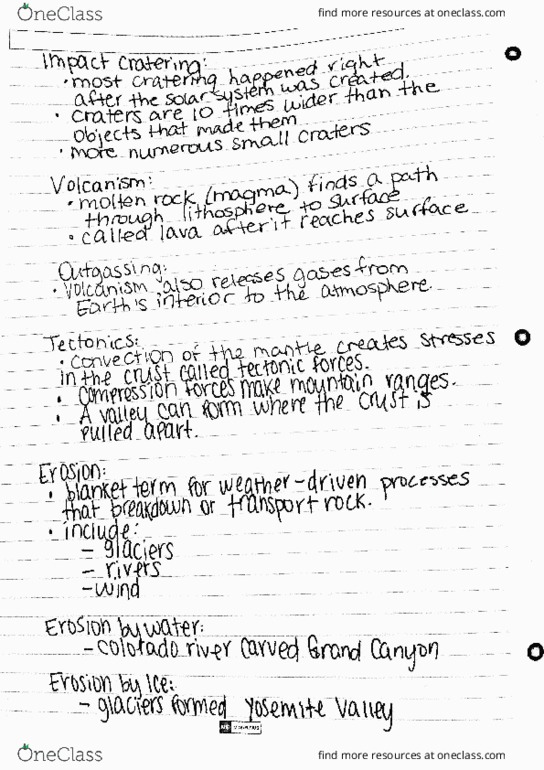 OneClass
find more resources at oneclass.com
Impact Cratering:
• most cratering happened right
after the solar system was created.
• craters are 10 times wider than the
objects that made them
• more numerous small craters
Volcanism:
• molten rock (magma) finds a path
through lithosphere to surface
• called lava after it reaches surface
Outgassing:
• Volcanism also releases gases from
Earth's interior to the atmosphere.
Tectonics:
• Convection of the mantle creates stresses
in the crust called tectonic forces.
• compression forces make mountain ranges.
• A valley can form where the crust is
pulled apart.
Erosion:
• blanket term for weather-driven processes
that breakdown or transport rock.
• include:
- glaciers
- rivers
- wind
Erosion by water:
- colorado river carved Grand Canyon
Erosion by Ice:
- glaciers formed Yosemite Valley
OneClass
find more resources at oneclass.com